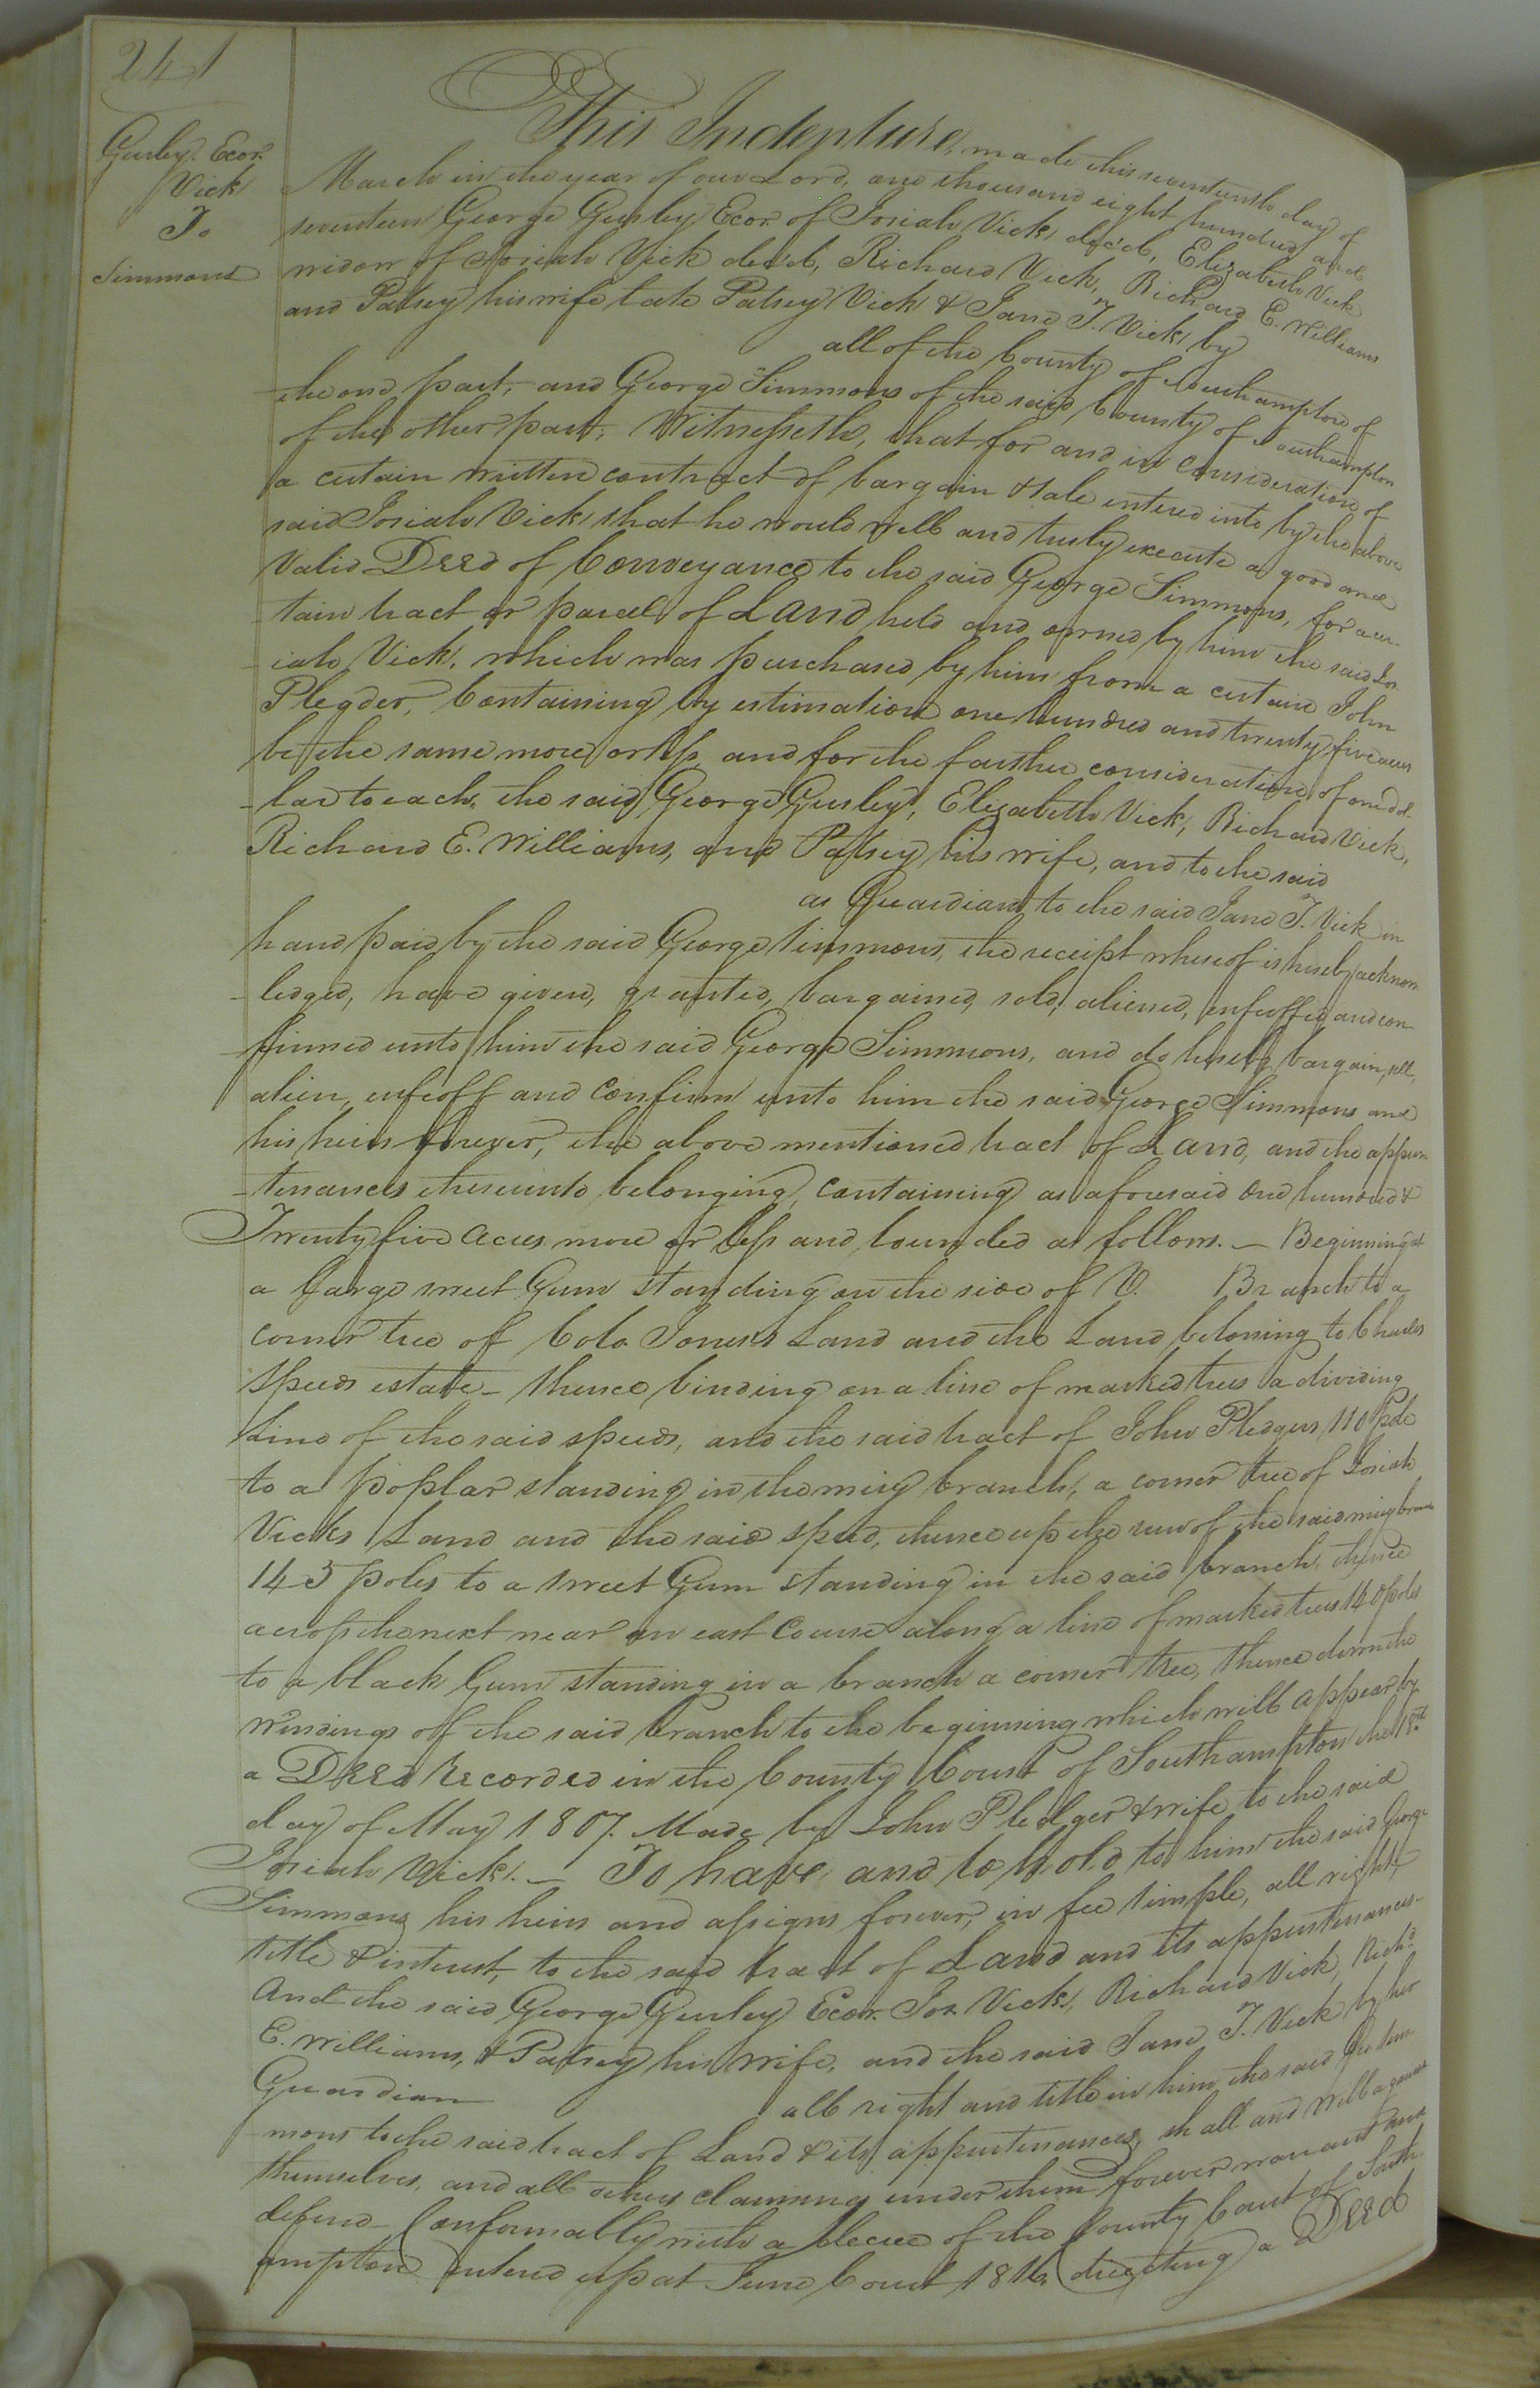 241
Gurley. Ecor.
Vick
To
Simmons
This Indenture, made this seventeenth day of
March in the year of our Lord, one thousand eight hundred and
seventeen George Gurley Ecor. of Josiah Vick dec'd, Elizabeth Vick
widow of Josiah Vick dec'd, Richard Vick, Richard E. Williams
and Patsey his wife late Patsey Vick & Jane T. Vick by
all of the County of Southampton of
the one part, and George Simmons of the said County of Southampton
of the other part, Witnesseth, that for and in Consideration of
a certain written contract of bargain & sale entered into by the above
said Josiah Vick, that he would well and truly execute a good and
Valid Deed of Conveyance to the said George Simmons, for a cer-
-tain tract or parcel of Land held and owned by him the said Jos-
-iah Vick, which was purchased by him from a certain John
Plegder, Containing by estimation one hundred and twenty five acres
be the same more or less, and for the farther consideration of one dol-
-lar to each, the said George Gurley, Elizabeth Vick, Richard Vick,
Richard E. Williams, and Patsey his wife, and to the said
as Guardian to the said Jane T. Vick in
hand paid by the said George Simmons, the receipt whereof is hereby acknow-
-ledged, have given, granted, bargained, sold, aliened, enfeoffed and con-
-firmed unto him the said George Simmons, and do hereby bargain, sell,
alien, enfeoff and Confirm unto him the said George Simmons and
his heirs forever, the above mentioned tract of Land, and the appur-
-tenances thereunto belonging, containing as aforesaid one hundred &
Twenty five Acres more or less and bounded as follows. — Beginning at
a large sweet Gum standing on the side of V. Branch to a
corner tree of Cole Jones's Land and the Land beloning to Charles
Speeds estate — thence binding on a line of marked trees a dividing
Line of the said speeds, and the said tract of John Pledgers, 110 pole
to a poplar standing in the miry branch, a corner tree of Josiah
Vicks Land and the said speed, thence up the run of the said miry branch
145 poles to a sweet Gum standing in the said branch, thence
across the next near an east Course along a line of marked trees 140 poles
to a black Gum standing in a branch a corner tree, thence down the
windings of the said branch to the beginning which will appear by
a Deed recorded in the County Court of Southampton the 18th
day of May 1807. Made by John Pledger & wife to the said
Josiah Vick. — To have and to hold to him the said George
Simmons his heirs and assigns forever, in fee simple, all right,
title & interest, to the said tract of Land and its appurtenances —
And the said George Gurley Ecor. Jos. Vick, Richard Vick, Rich.d
E. Williams, & Patsey his wife, and the said Jane T. Vick by her
Guardian all right and title in him the said Geo Sim-
-mons to the said tract of Land & its appurtenances, shall and will against
themselves, and all others claiming under them forever warrant and
defend — Conformably with a decree of the County Court of South-
ampton entered up at June Court 1816, directing a Deed